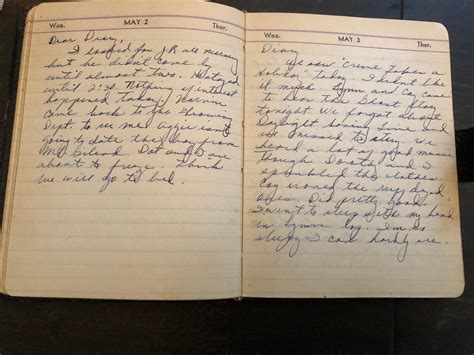 Wea. MAY 2 Ther.
Dear Diary,
I looked for J.R. all morning
but he didn't come by
until almost two. He stayed
until 2:30. Nothing of interest
happened today.
came back to the
Dept. to see me. Aggie isn't
going to date the boy from
Mt. Gilead. Dot and I are
about to freeze. Think
we will go to bed.
Wea. MAY 3 Ther.
Diary,
We saw "Crime Takes a
Holiday" today. I didn't like
it much. Lynn and Coy came
to hear the Ghost Story
tonight we forgot about
Daylight Saving Time and
we missed the story. We
heard a lot of good music
though. Dorothy and I
sprinkled the clothes.
Coy ironed the
ones. Did pretty good.
I went to sleep with my head
in Lynn's lap. I'm so
sleepy I can hardly see.